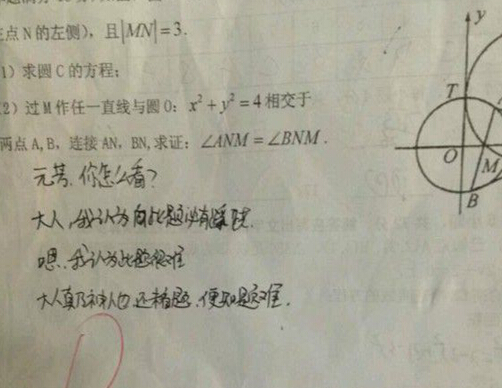 在点N的左侧），且|MN|=3.
1）求圆C的方程；
2）过M作任一直线与圆O：x²+y²=4相交于
两点A,B，连接AN，BN,求证：∠ANM=∠BNM.
元芳,你怎么看?
大人,我认为此题必有蹊跷.
嗯,我认为此题很难
大人真乃神人也,还看题,便知题难.
y
T
O
M
B